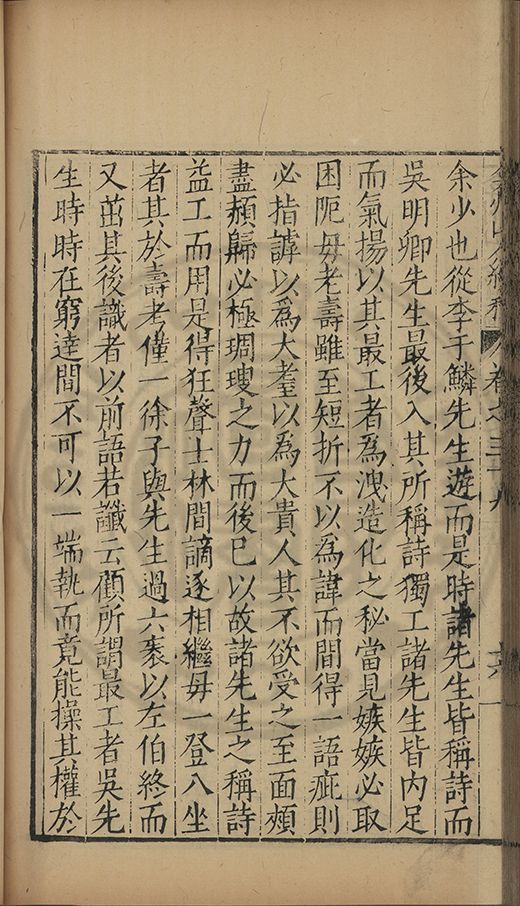 卷之三十九
余少也從李于鱗先生遊而是時諸先生皆稱詩而
吳明卿先生最後入其所稱詩獨工諸先生皆内足
而氣揚以其最工者爲洩造化之秘當見嫉嫉必取
困阨毋老壽雖至短折不以爲諱而間得一語疵則
必指謔以爲大耋以爲大貴人其不欲受之至面頰
盡頳歸必極琱瑳之力而後已以故諸先生之稱詩
益工而用是得狂聲士林間謫逐相繼毋一登八坐
者其於壽考僅一徐子與先生過六袠以左伯終而
又茁其後識者以前語若讖云顧所謂最工者吳先
生時時在窮達間不可以一端執而竟能操其權於